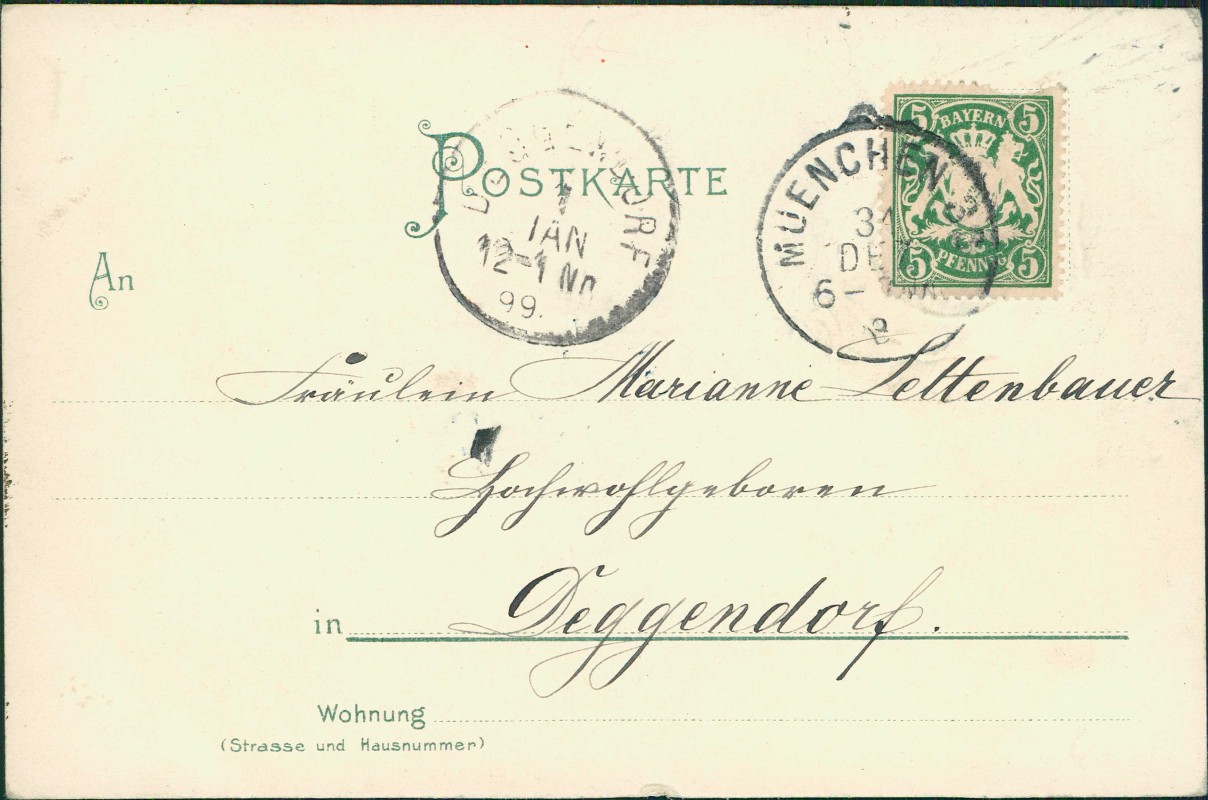 POSTKARTE
DEGGENDORF
1
JAN
12-1 Nm
99.
MUENCHEN
31
DE
6-
5 BAYERN 5
5 PFENNIG 5
An
Fräulein Marianne Lettenbauer
Hochwohlgeboren
in Deggendorf.
Wohnung
(Strasse und Hausnummer)